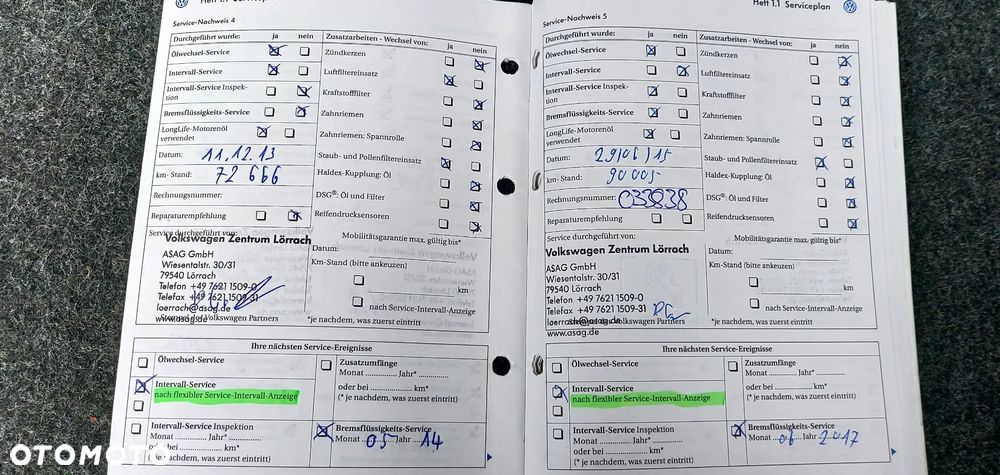 Heft 1.1 Serviceplan
Service-Nachweis 4
Durchgeführt wurde: ja nein
Ölwechsel-Service
Intervall-Service
Intervall-Service Inspek-
tion
Bremsflüssigkeits-Service
LongLife-Motorenöl
verwendet
Datum: 11.12.13
km- Stand: 72 666
Rechnungsnummer:
Reparaturempfehlung
Service durchgeführt von:
Volkswagen Zentrum Lörrach
ASAG GmbH
Wiesentalstr. 30/31
79540 Lörrach
Telefon +49 7621 1509-0
Telefax +49 7621 1509-31
loerrach@asag.de
Volkswagen Partners
www.asag.de
Zusatzarbeiten - Wechsel von: ja nein
Zündkerzen
Luftfiltereinsatz
Kraftstofffilter
Zahnriemen
Zahnriemen: Spannrolle
Staub- und Pollenfiltereinsatz
Haldex-Kupplung: Öl
DSG®: Öl und Filter
Reifendrucksensoren
Mobilitätsgarantie max. gültig bis*
Datum:
KM-Stand (bitte ankreuzen)
km
nach Service-Intervall-Anzeige
*je nachdem, was zuerst eintritt
Ihre nächsten Service-Ereignisse
Ölwechsel-Service
Intervall-Service
nach flexibler Service-Intervall-Anzeige
Intervall-Service Inspektion
Monat Jahr*
oder bei km*
(*je nachdem, was zuerst eintritt)
Zusatzumfänge
Monat Jahr*
oder bei km*
(* je nachdem, was zuerst eintritt)
Bremsflüssigkeits-Service
Monat 05 Jahr 14
Heft 1.1 Serviceplan
Service-Nachweis 5
Durchgeführt wurde: ja nein
Ölwechsel-Service
Intervall-Service
Intervall-Service Inspek-
tion
Bremsflüssigkeits-Service
LongLife-Motorenöl
verwendet
Datum: 29/06/15
km- Stand: 90005
Rechnungsnummer: 033838
Reparaturempfehlung
Service durchgeführt von:
Volkswagen Zentrum Lörrach
ASAG GmbH
Wiesentalstr. 30/31
79540 Lörrach
Telefon +49 7621 1509-0
Telefax +49 7621 1509-31
loerrach@asag.de
Volkswagen Partners
www.asag.de
Zusatzarbeiten - Wechsel von: ja nein
Zündkerzen
Luftfiltereinsatz
Kraftstofffilter
Zahnriemen
Zahnriemen: Spannrolle
Staub- und Pollenfiltereinsatz
Haldex-Kupplung: Öl
DSG®: Öl und Filter
Reifendrucksensoren
Mobilitätsgarantie max. gültig bis*
Datum:
KM-Stand (bitte ankreuzen)
km
nach Service-Intervall-Anzeige
*je nachdem, was zuerst eintritt
Ihre nächsten Service-Ereignisse
Ölwechsel-Service
Intervall-Service
nach flexibler Service-Intervall-Anzeige
Intervall-Service Inspektion
Monat Jahr*
oder bei km*
(*je nachdem, was zuerst eintritt)
Zusatzumfänge
Monat Jahr*
oder bei km*
(* je nachdem, was zuerst eintritt)
Bremsflüssigkeits-Service
Monat 06 Jahr 2017
OTOMOTO